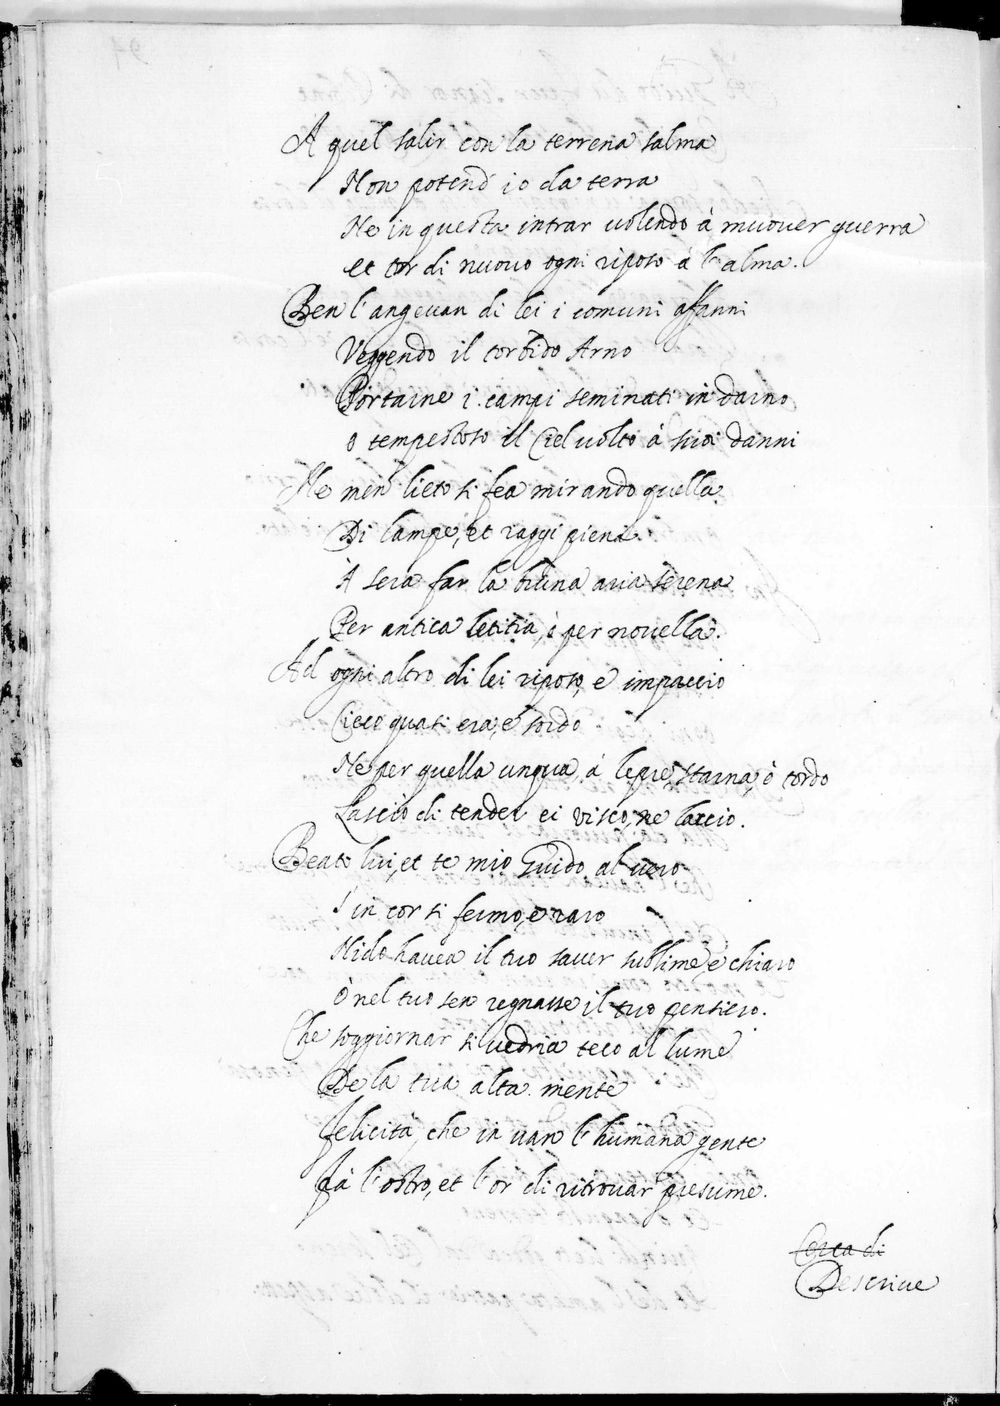 A quel salir con la terrena salma
Non potend' io da terra
Ne in questa intrar uolendo à muouer guerra
et tor di nuouo ogni riposo à l'alma.
Ben l'angeuan di lei i comuni affanni
Veggendo il torbido Arno
Portarne i campi seminati in darno
o tempestoso il Ciel uolto à suoi danni
Ne men lieto si fea mirando quella
Di lampe, et raggi piena
A sera far la bruna aria serena
Per antica letitia, è per nouella.
Ad ogni altro di lei riposo, e impaccio
Cieco quasi era, e sordo
Ne per quella unqua, à lepre, starna, ò tordo
Lasciò di tender ei visco, ne laccio.
Beato lui, et te mio Guido al uero
S'in cor si fermo, e raro
Nido hauea il tuo sauer sublime, e chiaro
O nel tuo sen regnasse il tuo pensiero.
Che soggiornar si uedria teco al lume
De la tua alta mente
Felicità, che in uan l'humana gente
Fà l'ostro, et l'or di ritrouar presume.
Cerca di
Descriue